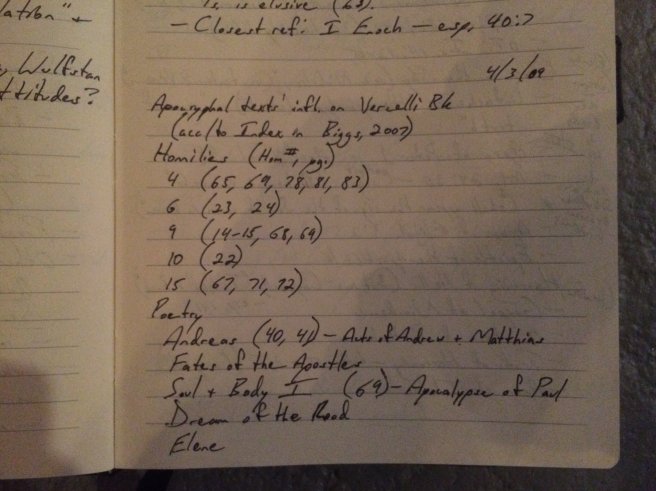 lation" +
Wulfstan
titudes?
is elusive (68).
- Closest ref: I Enoch - esp. 40:7
4/3/09
Apocryphal texts' infl. on Vercelli Bk
(acc/to Index in Biggs, 2007)
Homilies (Hom #, pg.)
4 (65, 69, 78, 81, 83)
6 (23, 24)
9 (14-15, 68, 69)
10 (22)
15 (67, 71, 72)
Poetry
Andreas (40, 41) - Acts of Andrew + Matthias
Fates of the Apostles
Soul + Body I (69) - Apocalypse of Paul
Dream of the Rood
Elene